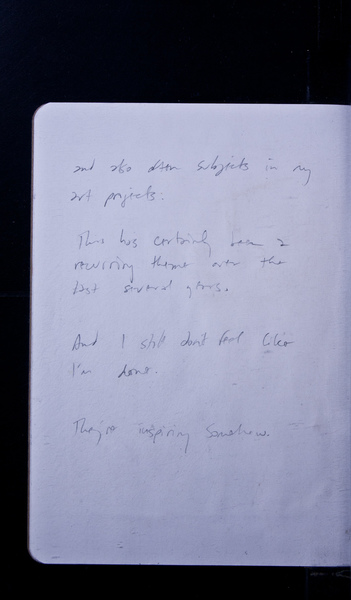 and also often subjects in my
art projects.
This has certainly been a
recurring theme over the
last several years.
And I still don't feel like
I'm done.
They're inspiring somehow.